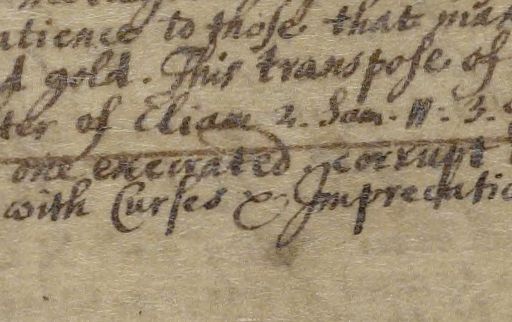 atience to those that
gold. This transpose of
ter of Eliam 2. Sam. 11. 3.
one execrated corrupt
with Curses & Imprecatio